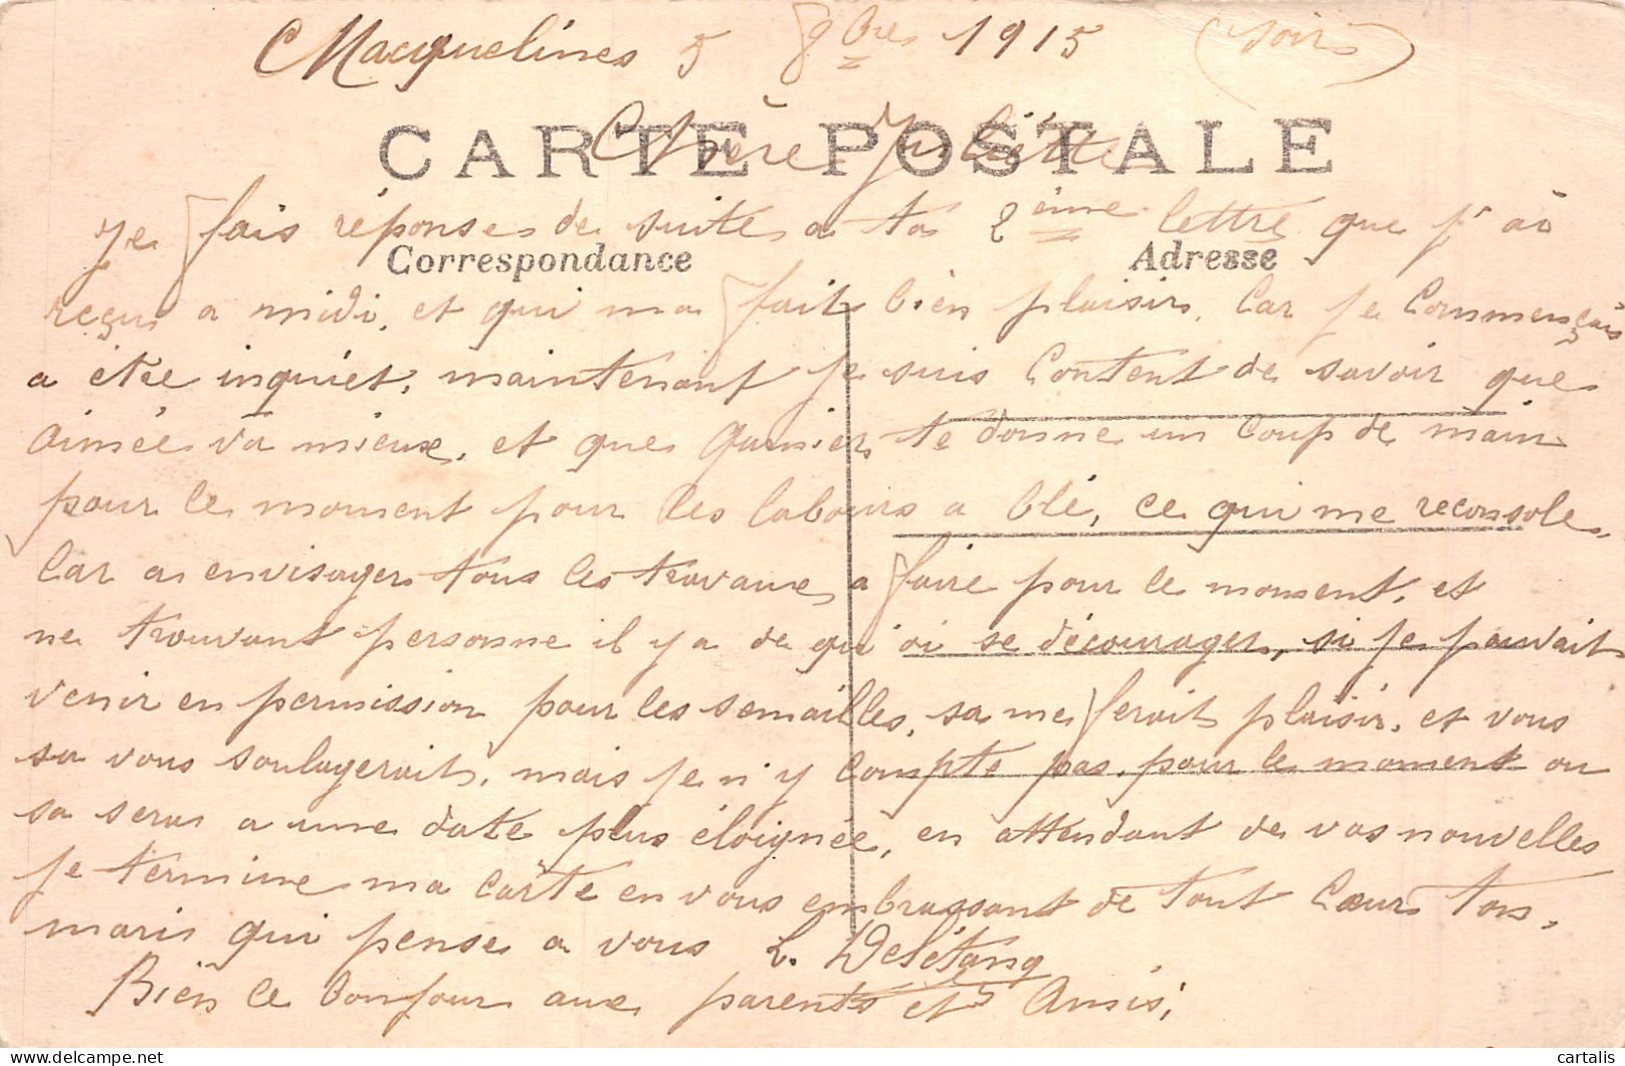 Macquelines 5 8bre 1915 (soir)
CARTE POSTALE
Chère Juliette
Je fais réponse de suite a ta 2ème lettre que j'ai
Correspondance Adresse
reçu a midi, et qui ma fait bien plaisir, car je commençais
a être inquiet, maintenant je suis content de savoir que
Aimée va mieux, et que Garnier te donne un coup de main
pour le moment pour les labours a blé, ce qui me reconsole,
car a envisager tous les travaux a faire pour le moment, et
ne trouvant personne il y a de qu'oi se décourager, si je pouvait
venir en permission pour les semailles, sa me ferait plaisir, et vous
sa vous soulagerait, mais je n'y compte pas, pour le moment ou
sa sera a une date plus éloignée, en attendant de vos nouvelles
je termine ma carte en vous embrassant de tout cœur ton
mari qui pense a vous L. Delétang
Bien le bonjour aux parents et Amis,
cartalis